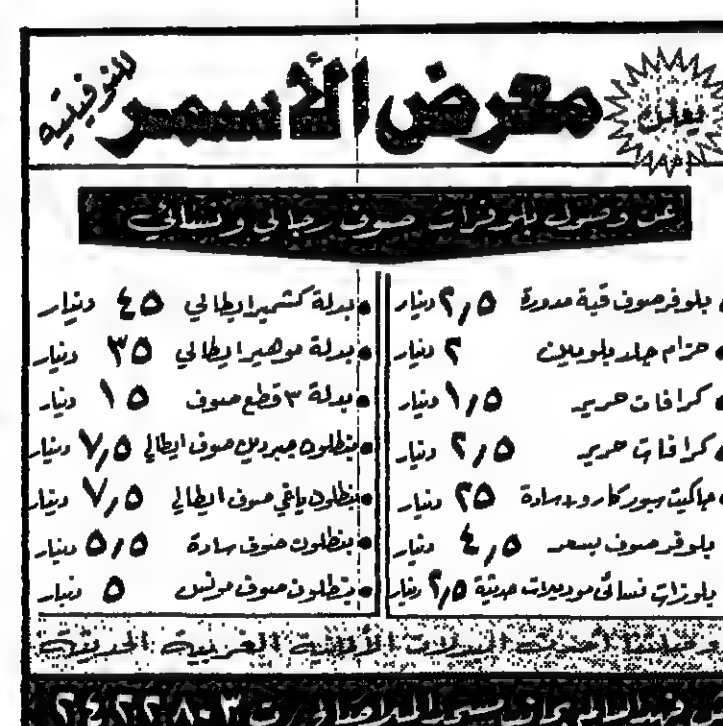 يعلن
معرض الأسمر
للنوفيتيه
عن وصول بلوفرات صوف رجالي ونسائي
بلوفر صوف قبة مدورة ٢٫٥ دينار
حزام جلد بلومبلان ٢ دينار
كرافات حرير ١٫٥ دينار
كرافات حرير ٢٫٥ دينار
جاكيت سبور كارو وسادة ٢٥ دينار
بلوفر صوف بسعر ٤٫٥ دينار
بلوزات نسائي موديلات حديثة ٢٫٥ دينار
بدلة كشمير ايطالي ٤٥ دينار
بدلة موهير ايطالي ٣٥ دينار
بدلة ٣ قطع صوف ١٥ دينار
بنطلون جبردين صوف ايطالي ٧٫٥ دينار
بنطلون ياقي صوف ايطالي ٧٫٥ دينار
بنطلون صوف سادة ٥٫٥ دينار
بنطلون صوف مونتيل ٥ دينار
وصلتنا أحدث البدلات الغربية الحديثة
فهد السالم بجانب مسجد الملا صالح ت ٢٤٢٢٨٠٣